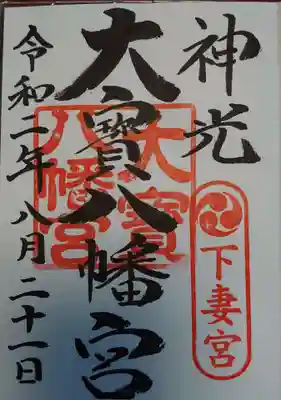 神光
下妻宮
大寳八幡宮
大寳
八幡宮
令和二年八月二十一日